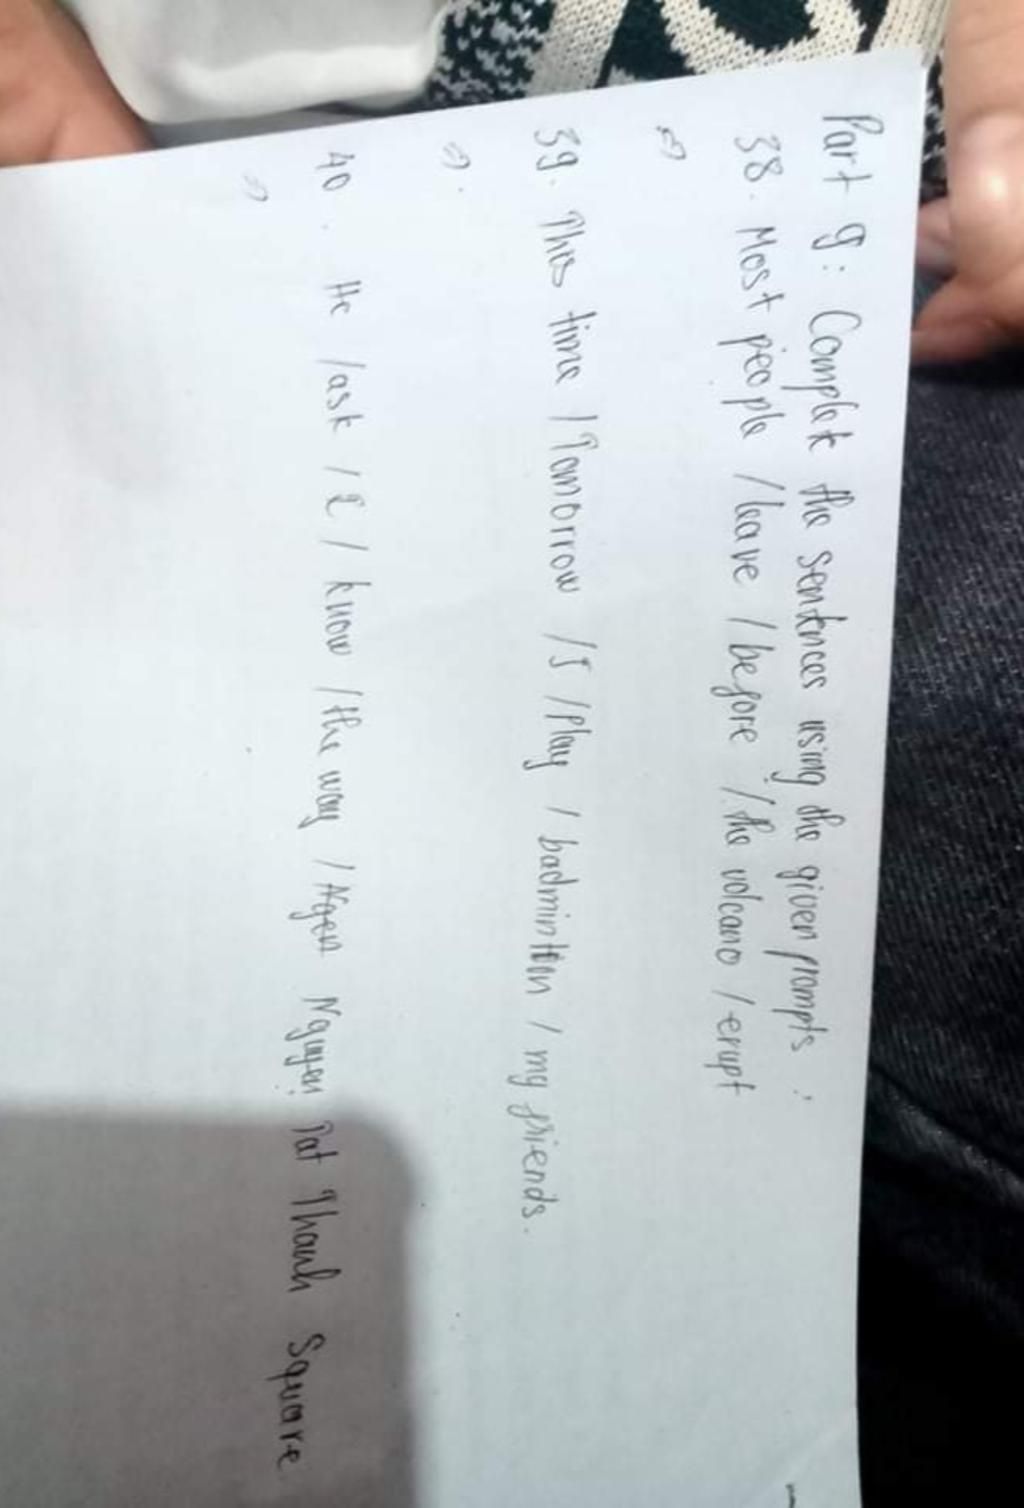 Part 9: Complete the sentences using the given prompts:
38. Most people / leave / before / the volcano / erupt
=>
39. This time / Tomorrow / I / play / badminton / my friends.
=>.
40. He / ask / I / know / the way / Nguyen Tat Thanh Square
=>